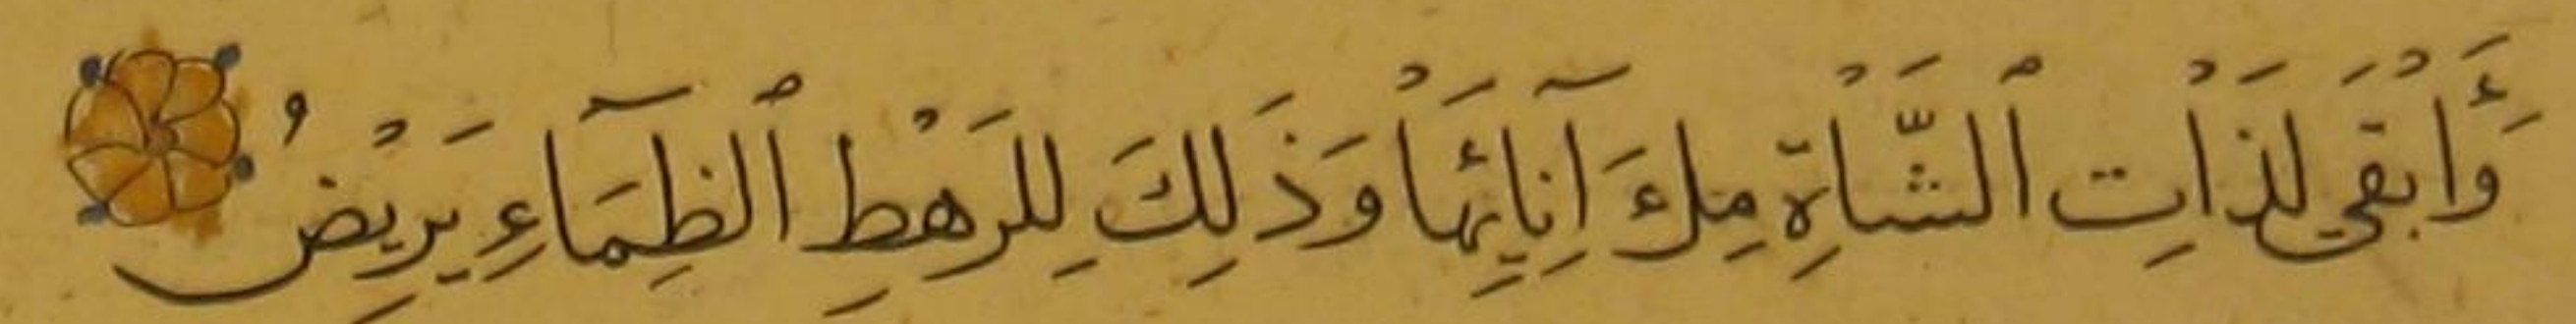 وَأَبْقَى لِذَاتِ ٱلشَّاةِ مِلءَ آنَائِهَا وَذَلِكَ لِلرَهْطِ ٱلظِمَآءِ يَرِيْضُ